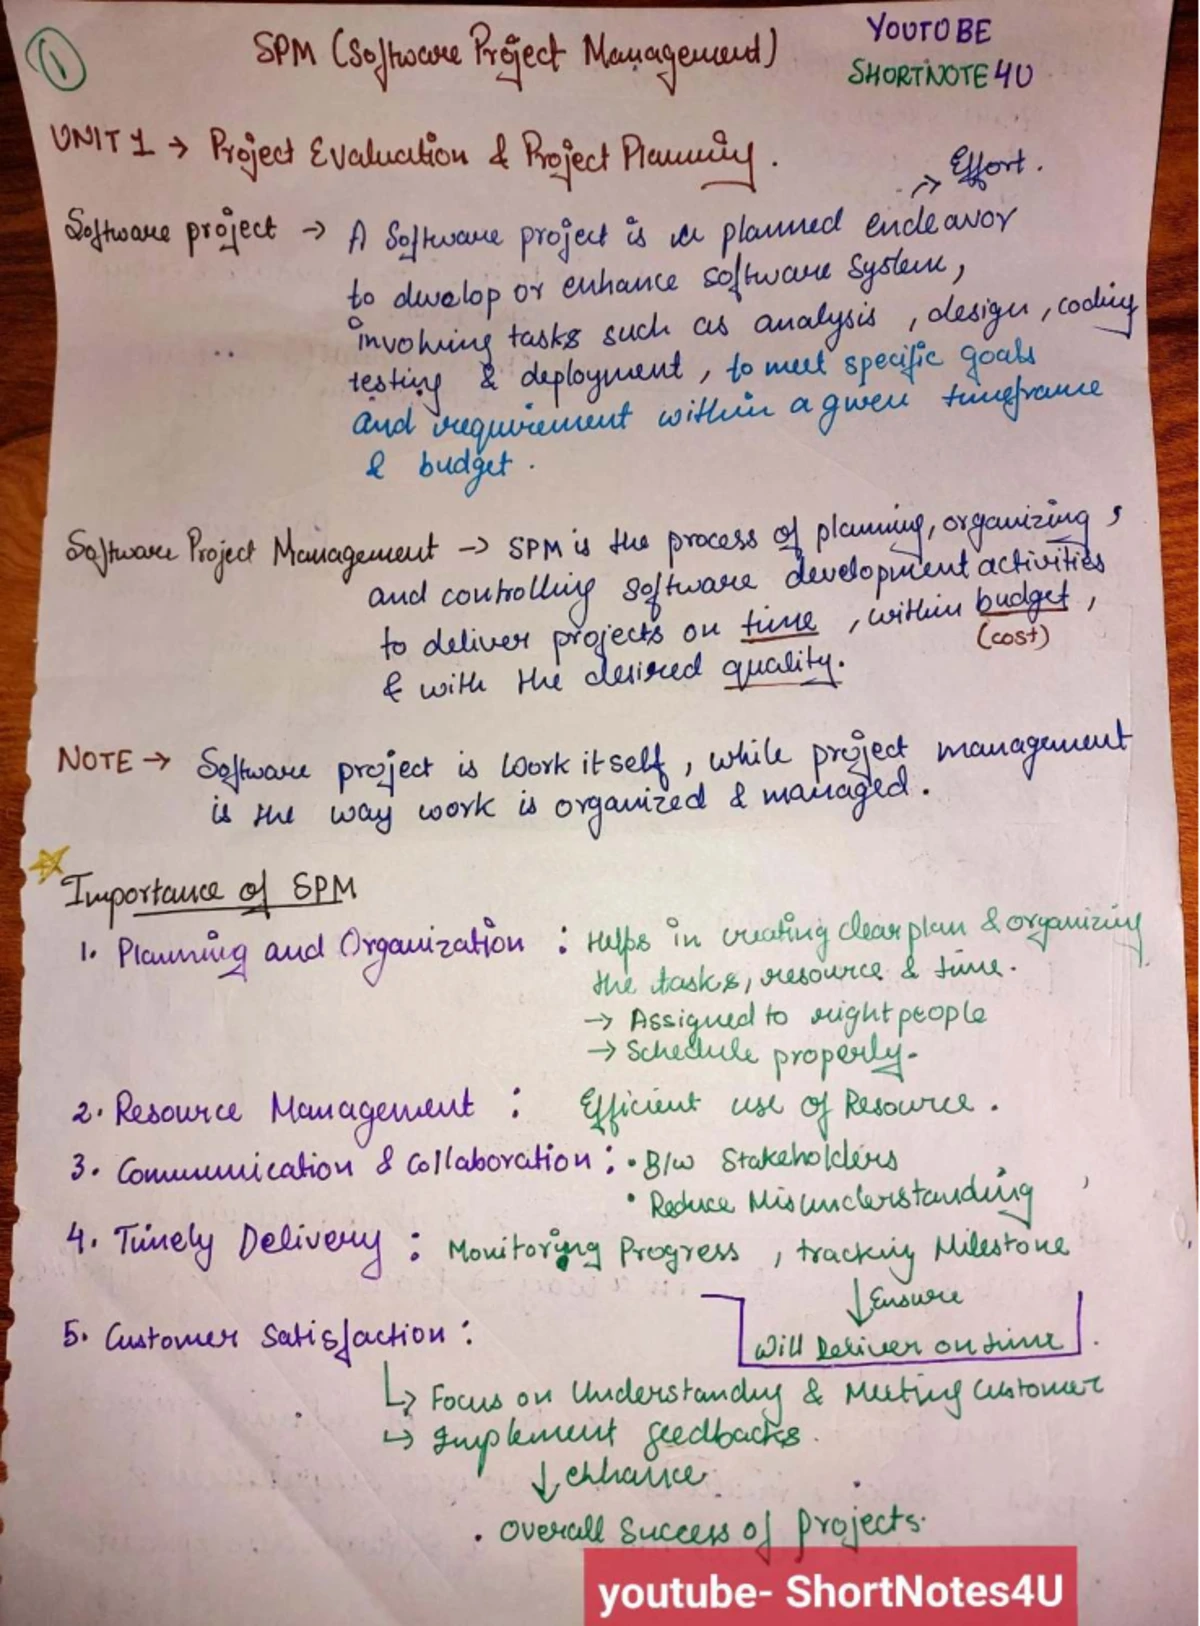 1
SPM (Software Project Management)
YOUTOBE
SHORTNOTE4U
UNIT 1 → Project Evaluation & Project Planning.
→ Effort.
Software project → A Software project is a planned endeavor
to develop or enhance software system,
involving tasks such as analysis, design, coding
testing & deployment, to meet specific goals
and requirement within a given timeframe
& budget.
Software Project Management → SPM is the process of planning, organizing,
and controlling software development activities
to deliver projects on time, within budget,
(cost)
& with the desired quality.
NOTE → Software project is work itself, while project management
is the way work is organized & managed.
Importance of SPM
1. Planning and Organization : Helps in creating clear plan & organizing
the tasks, resource & time.
→ Assigned to right people
→ Schedule properly.
2. Resource Management : Efficient use of Resource.
3. Communication & Collaboration : • B/w Stakeholders
• Reduce Misunderstanding
4. Timely Delivery : Monitoring Progress, tracking Milestone
↓ Ensure
will Deliver on time.
5. Customer Satisfaction :
↳ Focus on Understanding & Meeting Customer
↳ Implement feedbacks.
↓ enhance
• Overall Success of projects.
youtube- ShortNotes4U